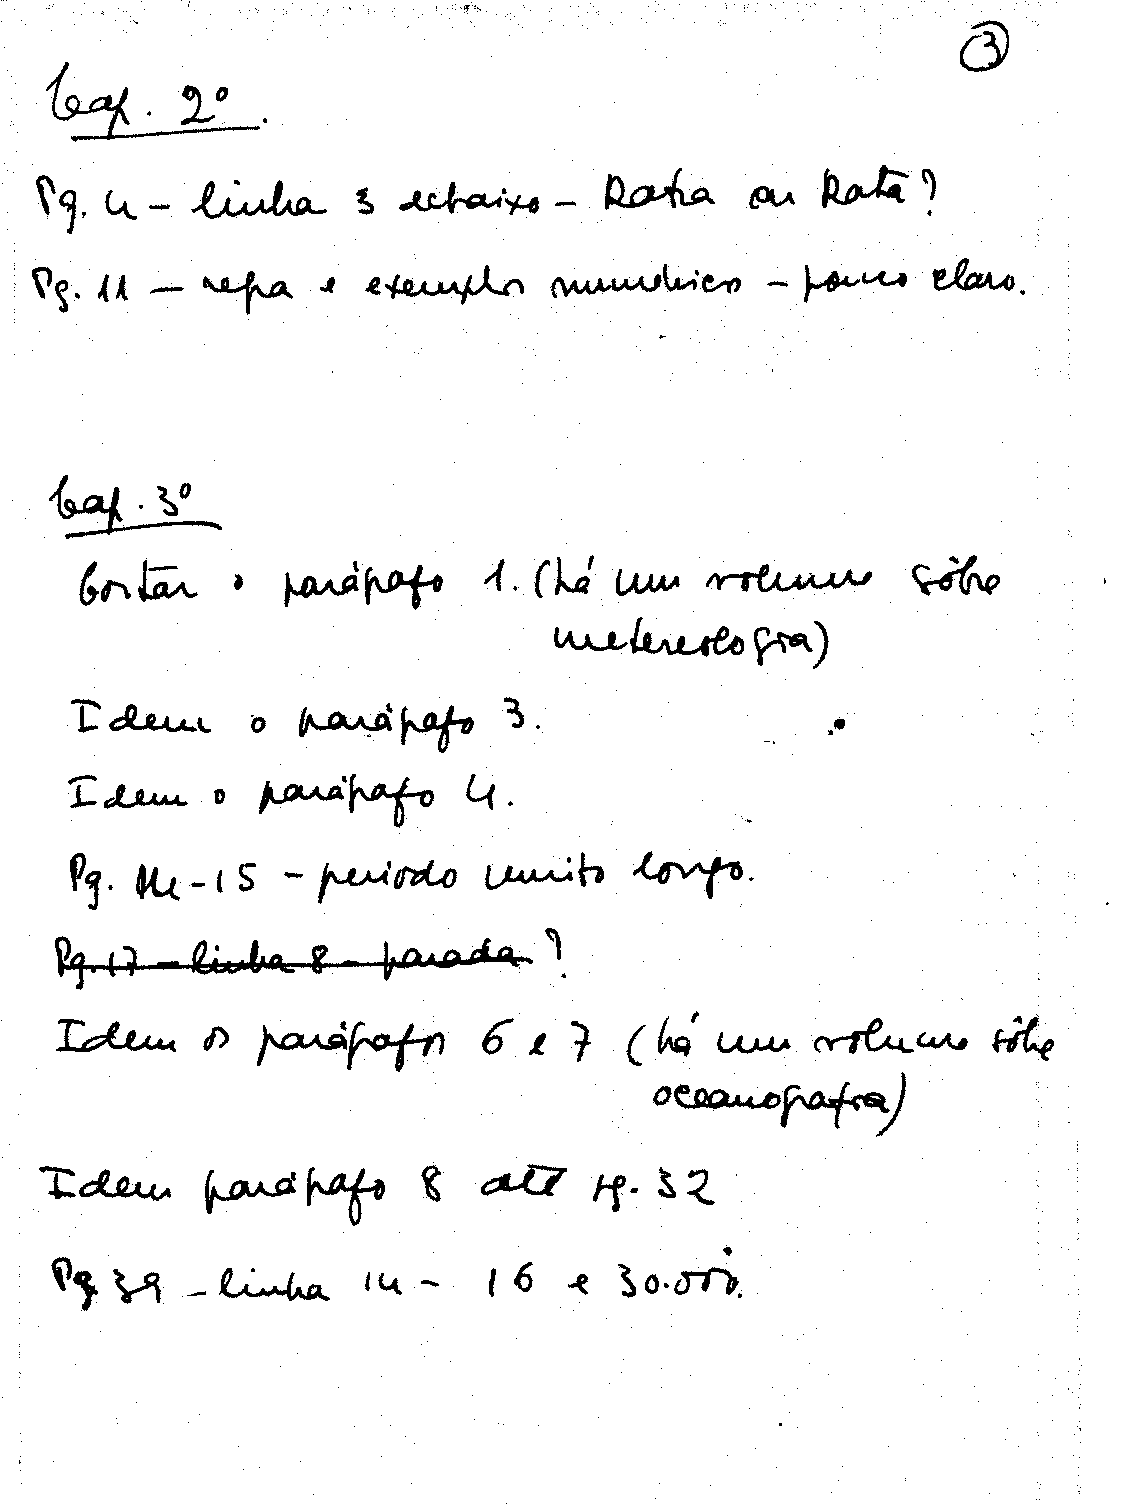 3
Cap. 2º.
Pg. 4 - linha 3 - Rotia ou Rota?
Pg. 11 - regra e exemplos numéricos - pouco claro.
Cap. 3º
Cortar o parágrafo 1. (há um volume sôbre
metereologia)
Idem o parágrafo 3.
Idem o parágrafo 4.
Pg. 14-15 - periodo muito longo.
Pg. 17 - linha 8 - parada ?
Idem os parágrafos 6 e 7 (há um volume sôbre
oceanografia)
Idem parágrafo 8 até pg. 32
Pg 39 - linha 14 - 16 e 30.000.